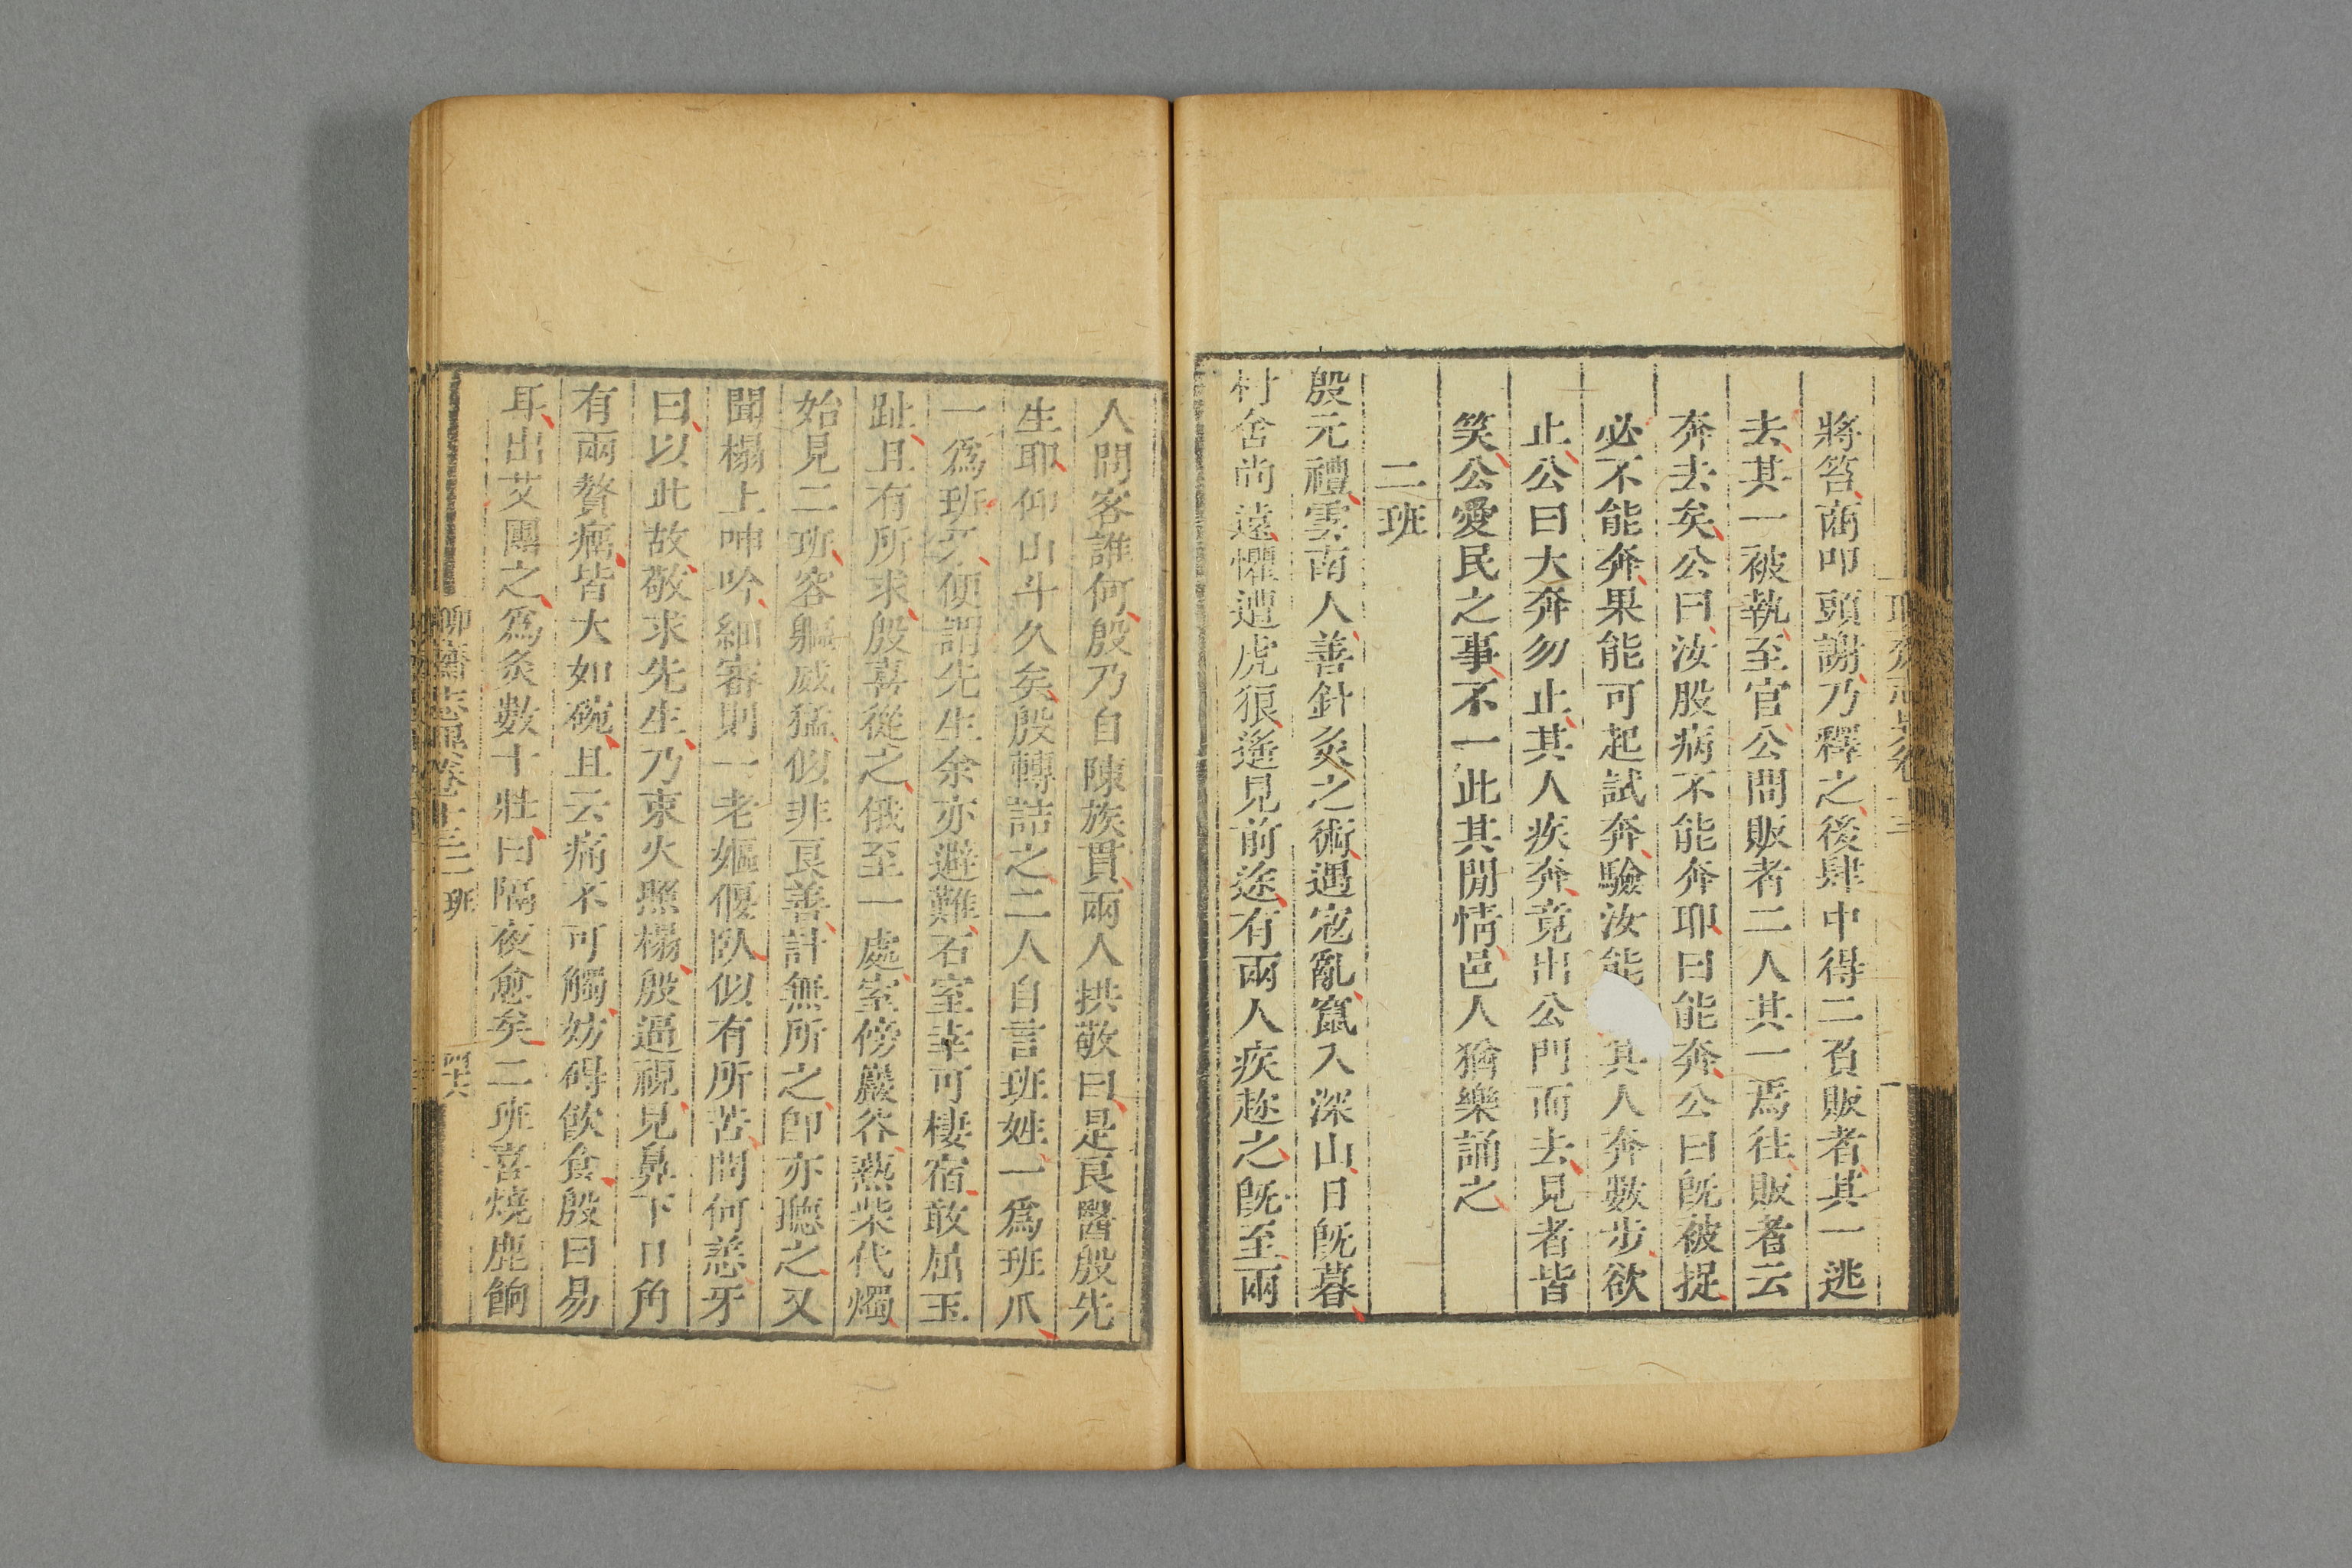 將笞商叩頭謝乃釋之後肆中得二負販者其一逃
去其一被執至官公問販者二人其一焉往販者云
奔去矣公曰汝股病不能奔耶曰能奔公曰旣被捉
必不能奔果能可起試奔驗汝能其人奔數步欲
止公曰大奔勿止其人疾奔竟出公門而去見者皆
笑公愛民之事不一此其閒情邑人猶樂誦之
二班
殷元禮雲南人善針灸之術遇寇亂竄入深山日旣暮
村舍尚遠懼遭虎狼遙見前途有兩人疾趂之旣至兩
人問客誰何殷乃自陳族貫兩人拱敬曰是良醫殷先
生耶仰山斗久矣殷轉詰之二人自言班姓一爲班爪
一爲班牙便謂先生余亦避難石室幸可棲宿敢屈玉
趾且有所求殷喜從之俄至一處室傍巖谷爇柴代燭
始見二班容軀威猛似非良善計無所之卽亦聽之又
聞榻上呻吟細審則一老嫗偃臥似有所苦問何恙牙
曰以此故敬求先生乃束火照榻殷逼視見鼻下口角
有兩贅瘤皆大如碗且云痛不可觸妨碍飲食殷曰易
耳出艾團之爲灸數十壯曰隔夜愈矣二班喜燒鹿餉
聊齋志異卷十二 二班 四六